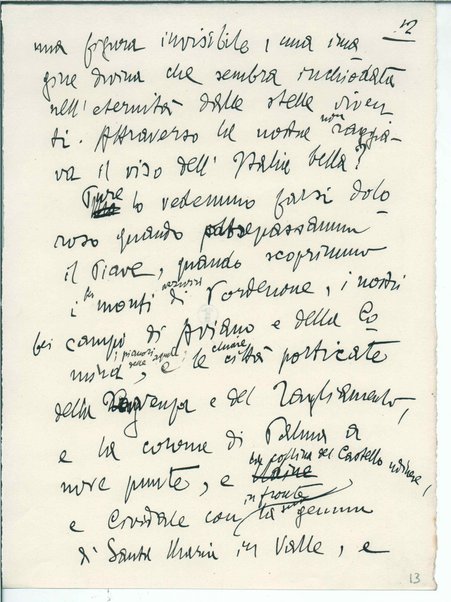 12
una figura invisibile, una ima
gine divina che sembra inchiodata
nell'eternità dalle stelle viven
ti. Attraverso le nostre non raggia-
va il viso dell'Italia bella?
Pure lo vedemmo farsi dolo
roso quando passammo
il Piave, quando scoprimmo
i bei monti azzurri di Pordenone, i nostri
bei campi di Aviano e della Co
mina, e le chiare città porticate
della Livenza e del Tagliamento,
e la corona di Palma a
nove punte, e la collina del Castello udinese,
Udine
e Cividale con in fronte la gemma
di Santa Maria in Valle, e
13